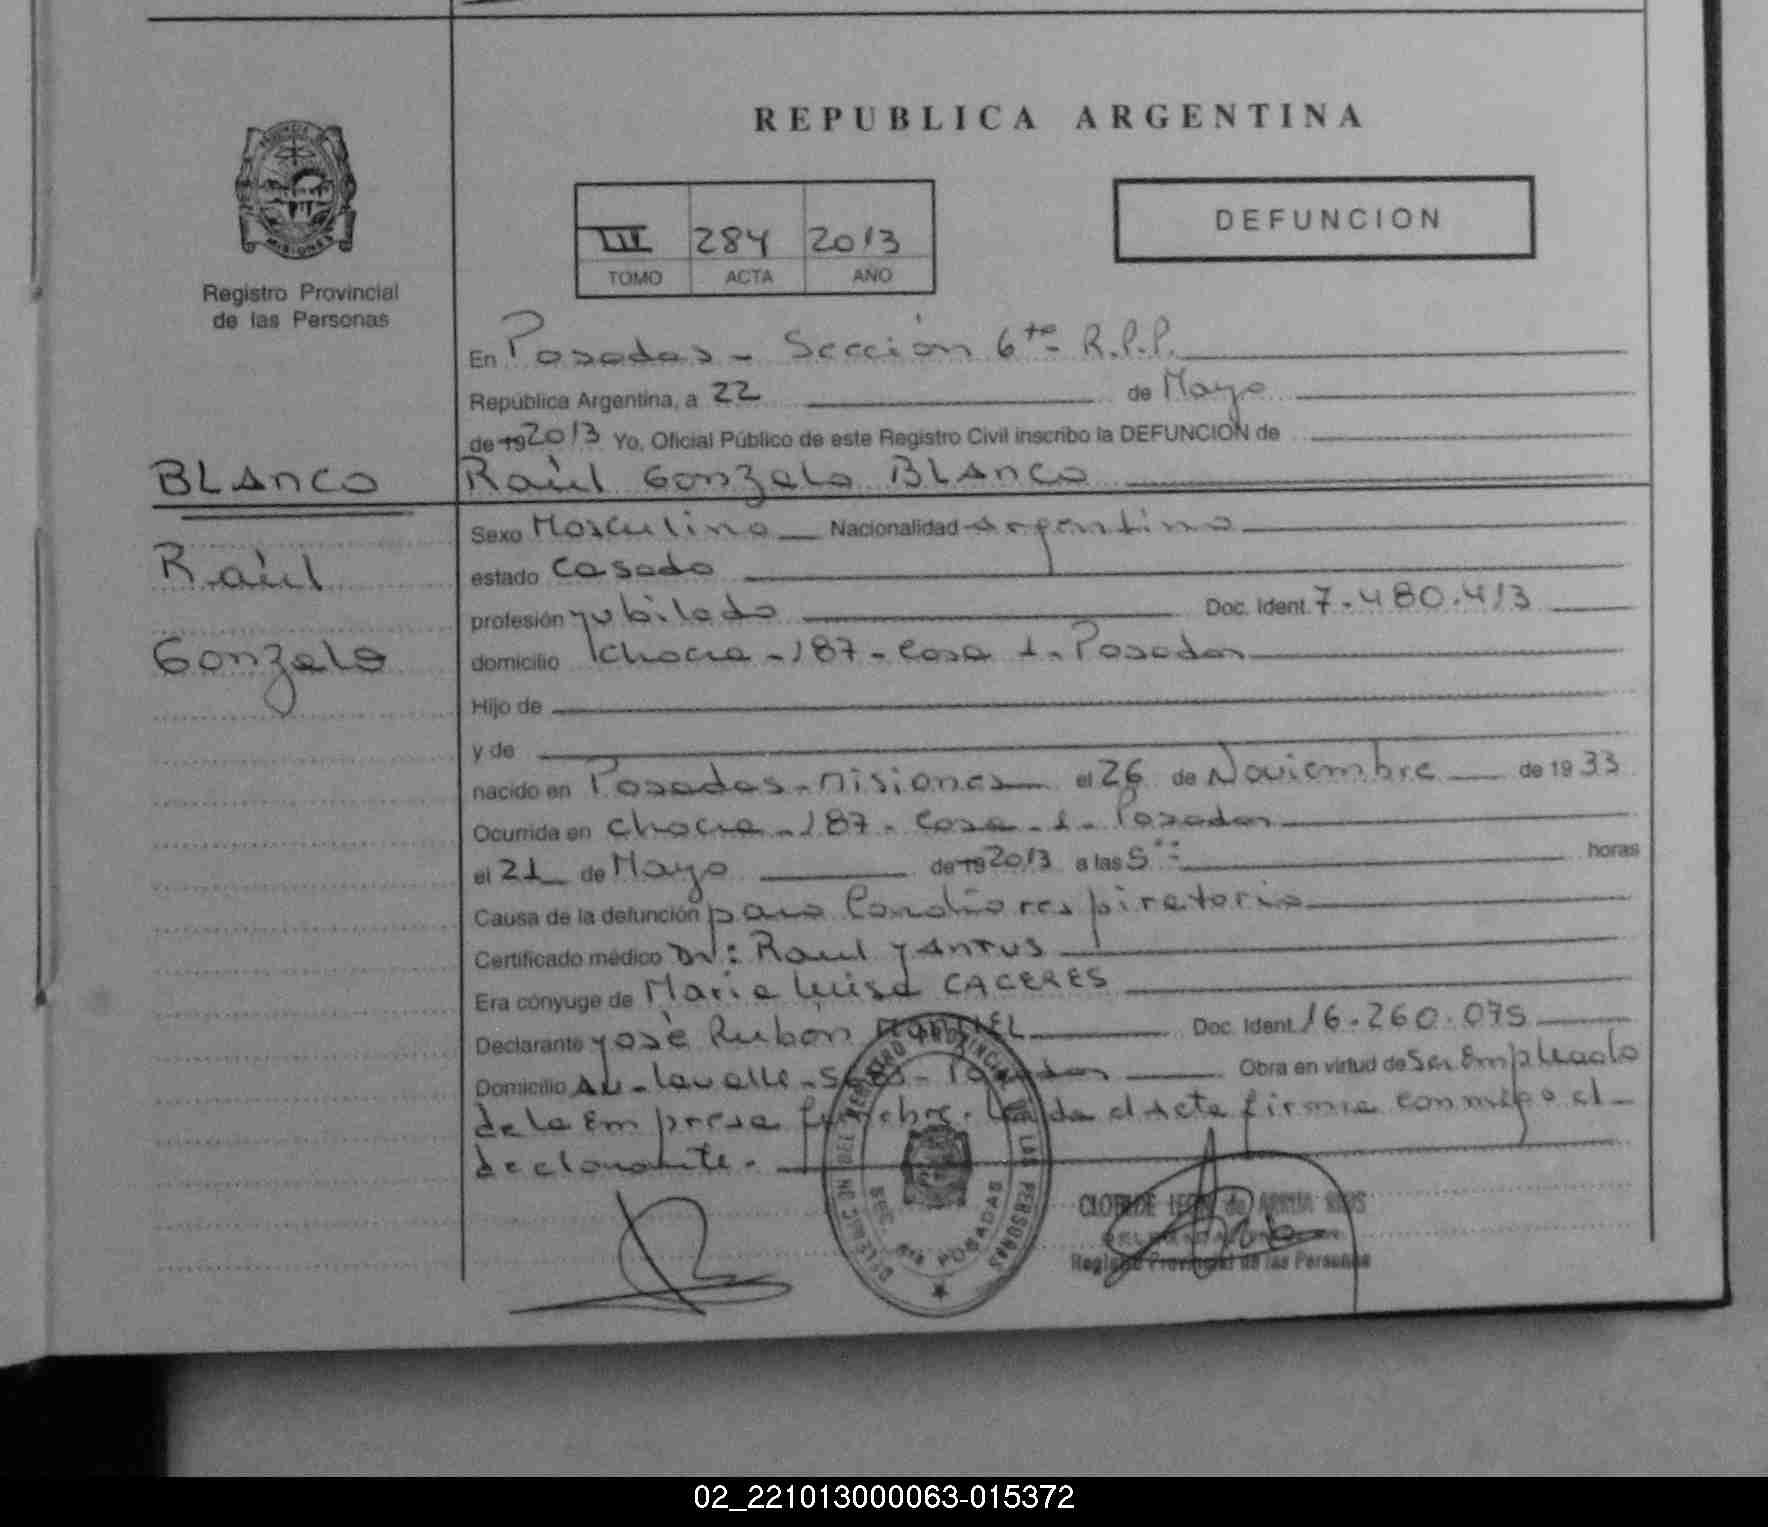 REPUBLICA ARGENTINA
PROVINCIA DE
MISIONES
Registro Provincial
de las Personas
III 284 2013
TOMO ACTA AÑO
DEFUNCION
En Posadas - Sección 6ta R.P.P.
República Argentina, a 22 de Mayo
de 19 2013 Yo, Oficial Público de este Registro Civil inscribo la DEFUNCION de
BLANCO
Raúl Gonzalo BLANCO
Raúl
Gonzalo
Sexo Masculino Nacionalidad Argentino
estado Casado
profesión Jubilado Doc. Ident. 7.480.413
domicilio -187- Casa 1- Posadas
Hijo de
y de
nacido en Posadas - Misiones el 26 de Noviembre de 1933
Ocurrida en -187- Casa - 1- Posadas
el 21 de Mayo de 19 2013 a las 5 horas
Causa de la defunción paro Cardio respiratorio
Certificado médico Dr: Raul
Era cónyuge de Maria Luisa CACERES
Declarante José Rubén Doc. Ident. 16.260.075
Domicilio Av. Lavalle - Posadas Obra en virtud de Ser Empleado
de la Empresa fúnebre. Leída el acta firma conmigo el
declarante.
DELEGAC. Nº DEL REGISTRO PROVINCIAL DE LAS PERSONAS
SECC. 6ta POSADAS
CLOTILDE LEON de ARRUA
Registro Provincial de las Personas
02_221013000063-015372